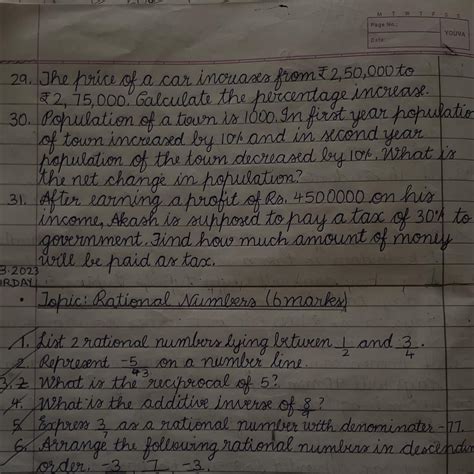 M T W T F S S
Page No.:
Date:
YOUVA
29. The price of a car increases from ₹2,50,000 to
₹2,75,000. Calculate the percentage increase.
30. Population of a town is 1000. In first year population
of town increased by 10% and in second year
population of the town decreased by 10%. What is
the net change in population?
31. After earning a profit of Rs. 4500000 on his
income, Akash is supposed to pay a tax of 30% to
government. Find how much amount of money
will be paid as tax.
3.2023
RDAY
• Topic: Rational Numbers (6 marks)
1. List 2 rational numbers lying between 1/2 and 3/4.
2. Represent -5/3 on a number line.
3. What is the reciprocal of 5?
4. What is the additive inverse of 8/9?
5. Express as a rational number with denominater -77.
6. Arrange the following rational numbers in descend
order. -3 7 -3